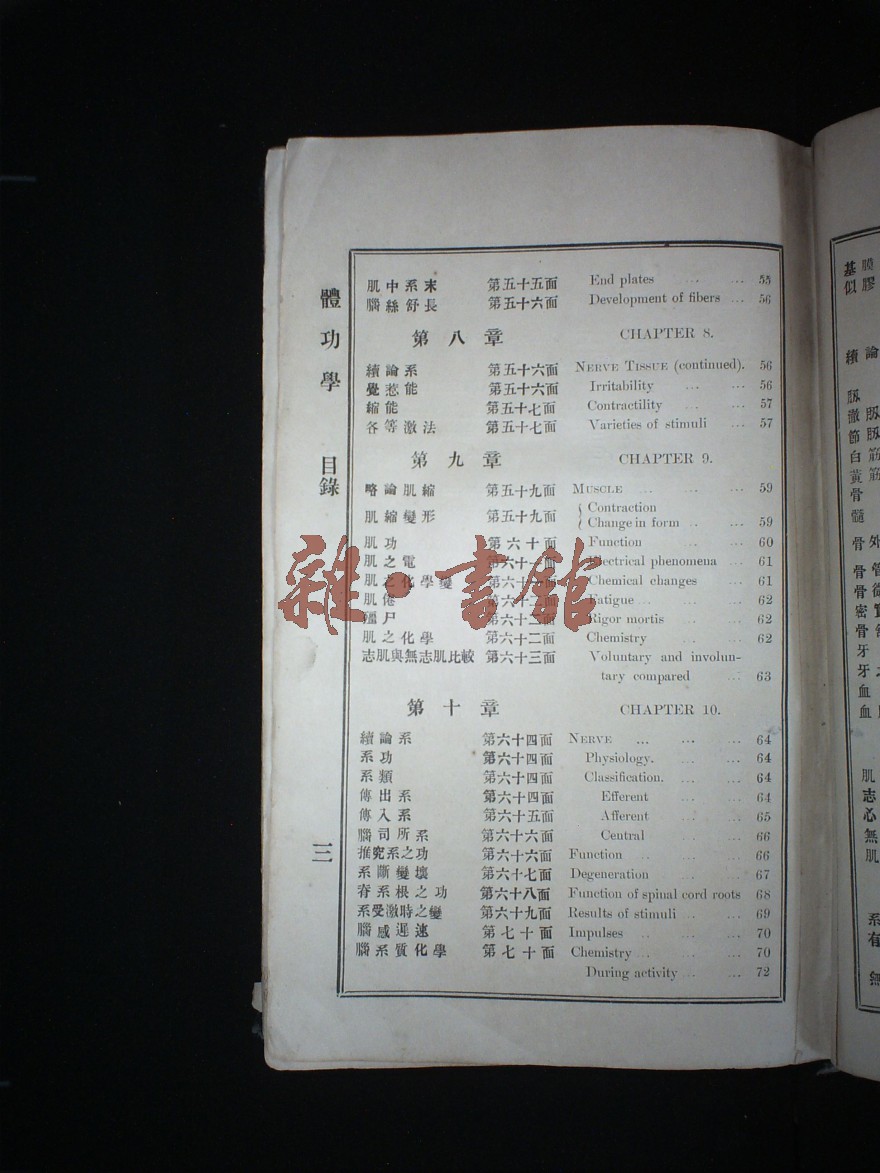 體功學 目錄 三
肌中系末 第五十五面 End plates ... ... 55
腦絲舒長 第五十六面 Development of fibers ... 56
第八章 CHAPTER 8.
續論系 第五十六面 NERVE TISSUE (continued). 56
覺惹能 第五十六面 Irritability ... ... 56
縮能 第五十七面 Contractility ... ... 57
各等激法 第五十七面 Varieties of stimuli ... 57
第九章 CHAPTER 9.
略論肌縮 第五十九面 MUSCLE ... ... ... 59
肌縮變形 第五十九面 { Contraction
Change in form ... ... 59
肌功 第六十面 Function ... ... 60
肌之電 第六十一面 Electrical phenomena ... 61
肌之化學變 第六十一面 Chemical changes ... 61
肌倦 第六十二面 Fatigue ... ... ... 62
殭尸 第六十二面 Rigor mortis ... ... 62
肌之化學 第六十二面 Chemistry ... ... 62
志肌與無志肌比較 第六十三面 Voluntary and involun-
tary compared ... 63
第十章 CHAPTER 10.
續論系 第六十四面 NERVE ... ... ... 64
系功 第六十四面 Physiology. ... ... 64
系類 第六十四面 Classification. ... ... 64
傳出系 第六十四面 Efferent ... ... 64
傳入系 第六十五面 Afferent ... ... 65
腦司所系 第六十六面 Central ... ... 66
推究系之功 第六十六面 Function ... ... ... 66
系斷變壞 第六十七面 Degeneration ... ... 67
脊系根之功 第六十八面 Function of spinal cord roots 68
系受激時之變 第六十九面 Results of stimuli ... ... 69
腦感遲速 第七十面 Impulses ... ... ... 70
腦系質化學 第七十面 Chemistry ... ... ... 70
During activity ... ... 72
雜·書館
膜膠
基似
續論
骨
髓
骨外
牙
血
肌
志
心
無
肌
系
有
無